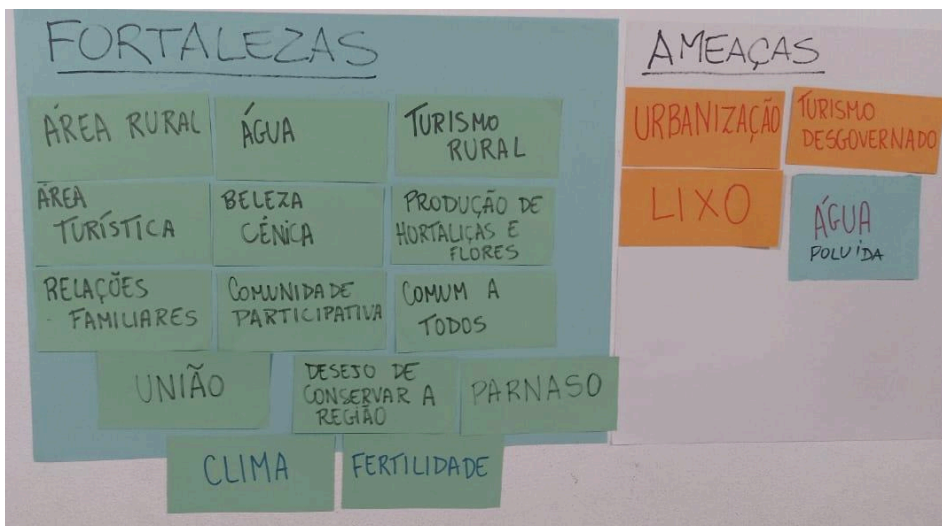 FORTALEZAS
ÁREA RURAL
ÁGUA
TURISMO
RURAL
ÁREA
TURÍSTICA
BELEZA
CÊNICA
PRODUÇÃO DE
HORTALIÇAS E
FLORES
RELAÇÕES
FAMILIARES
COMUNIDADE
PARTICIPATIVA
COMUM A
TODOS
UNIÃO
DESEJO DE
CONSERVAR A
REGIÃO
PARNASO
CLIMA
FERTILIDADE
AMEAÇAS
URBANIZAÇÃO
TURISMO
DESGOVERNADO
LIXO
ÁGUA
POLUÍDA